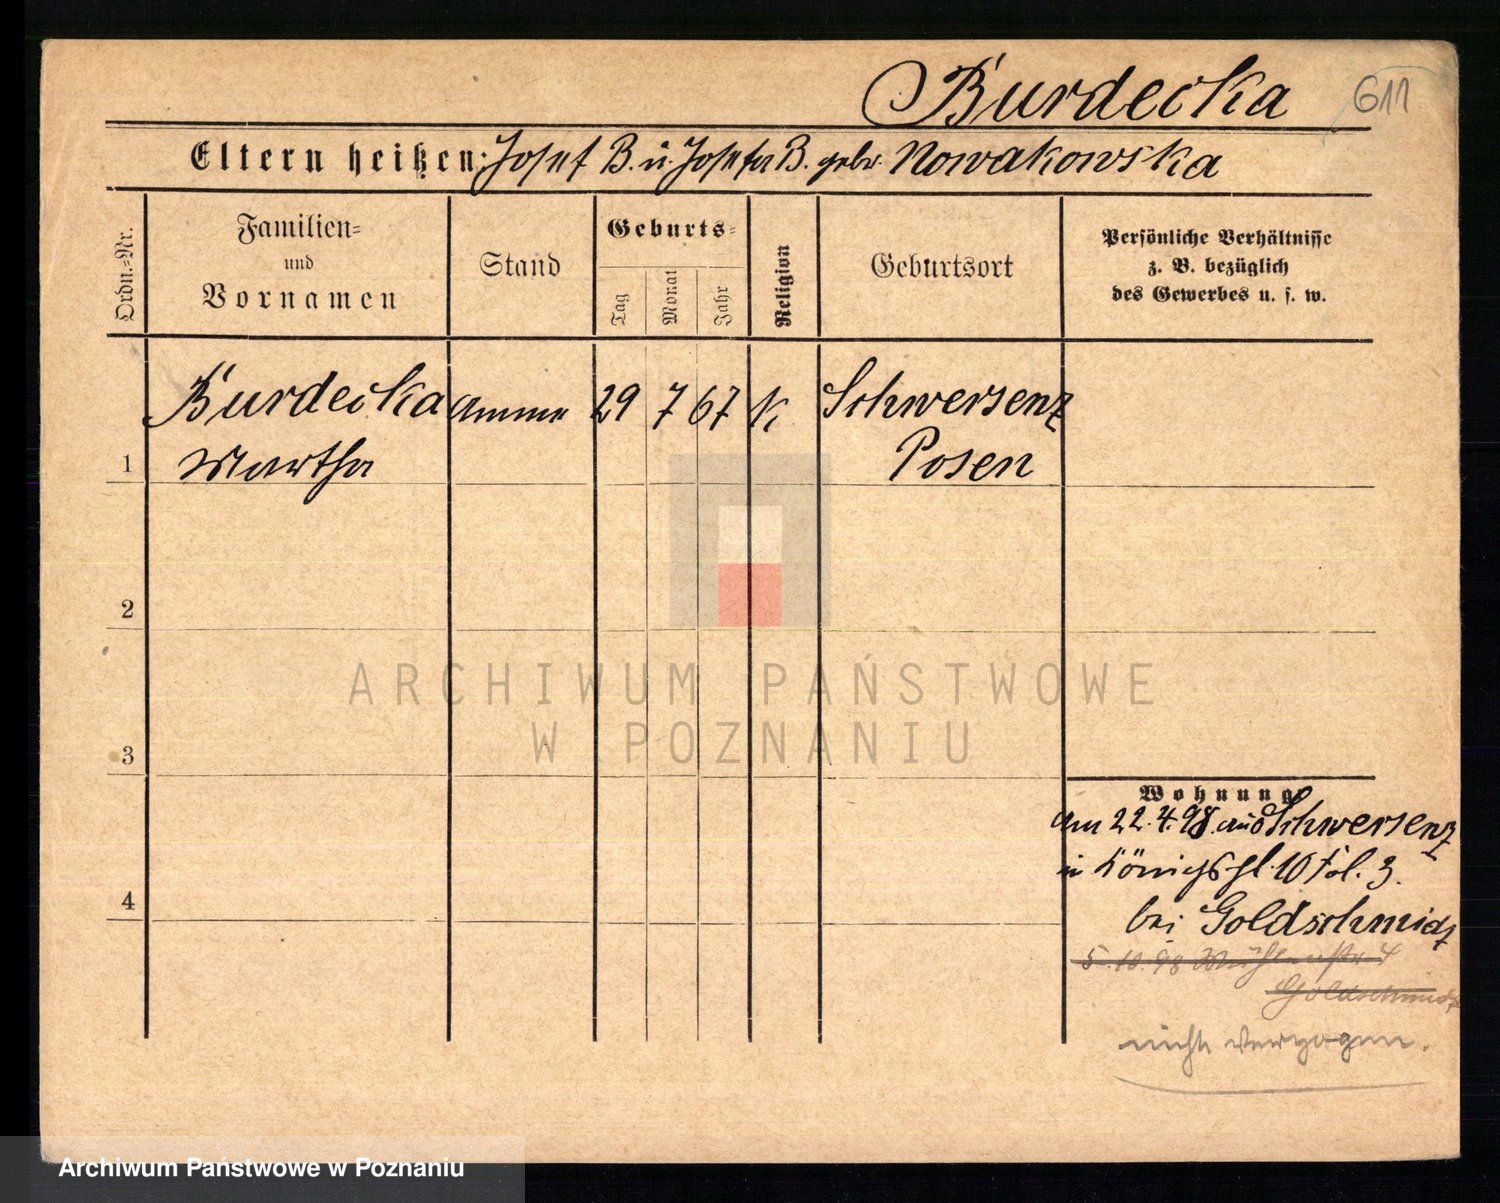 Burdecka 611
Eltern heißen: Josef B. u. Josefa B. gebr. Nowakowska
Ordn.-Nr.
Familien-
und
Vornamen
Stand
Geburts-
Tag
Monat
Jahr
Religion
Geburtsort
Persönliche Verhältnisse
z. B. bezüglich
des Gewerbes u. s. w.
Burdecka Amme 29 7 67 K Schwersenz
1 Martha Posen
2
ARCHIWUM PAŃSTWOWE
W POZNANIU
3
Wohnung
am 22.4.98 aus Schwersenz
in Königspl. 10 III. 3.
4
bei Goldschmidt
5.10.98 Mühlenstr 4
Goldschmidt
nicht verzogen.
Archiwum Państwowe w Poznaniu